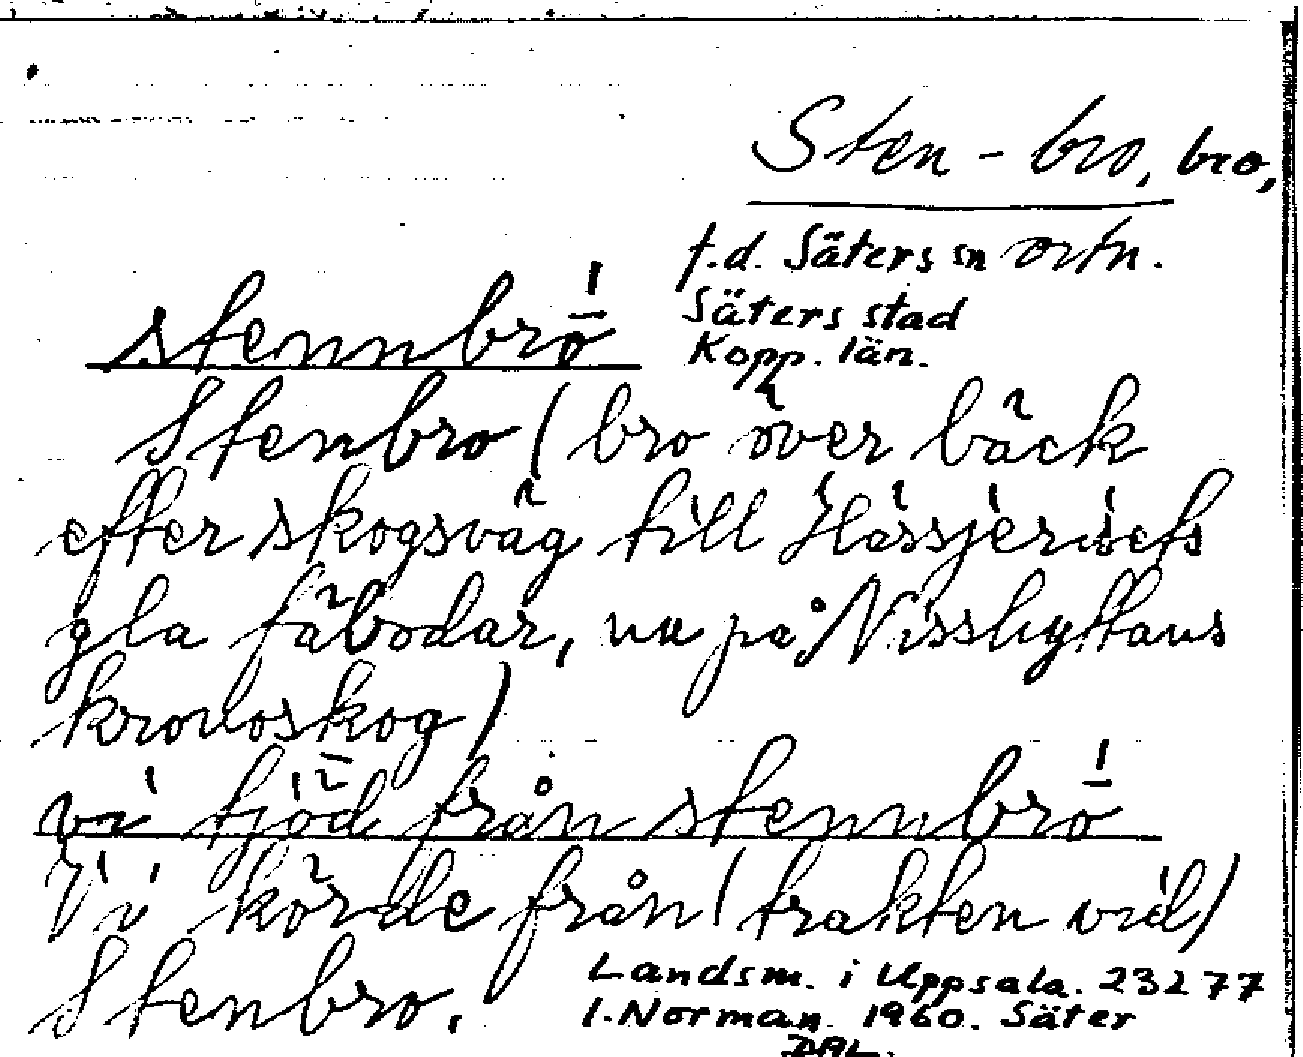 Sten-bro, bro,
f.d. Säters sn ortn.
Säters stad
Kopp. län.
stennbrō
Stenbro (bro över bäck
efter skogsväg till
gla fäbodar, nu på Nisshyttans
kronoskog)
vi tjöd från stennbrō
Vi körde från (trakten vid)
Stenbro.
Landsm. i Uppsala. 23277
I. Norman. 1960. Säter
DAL.